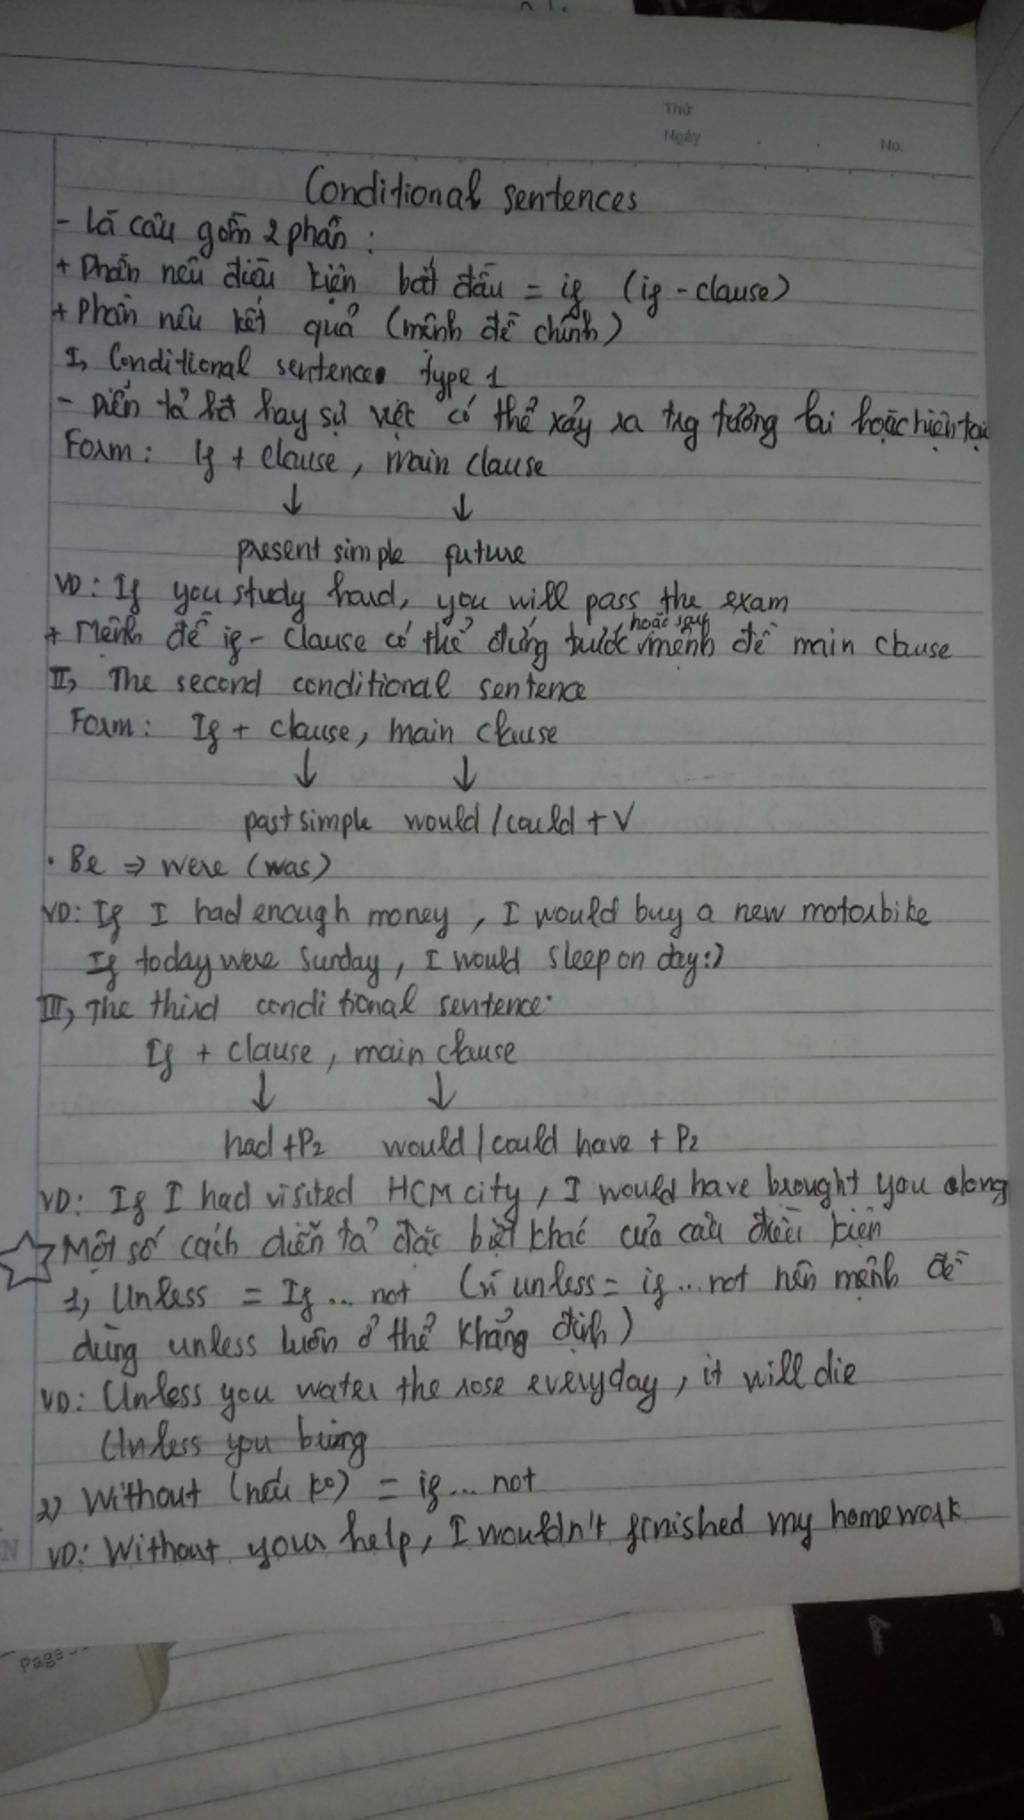 Thứ
Ngày
No.
Conditional sentences
- là câu gồm 2 phần :
+ Phần nêu điều kiện bắt đầu = if (if - clause)
+ Phần nêu kết quả (mệnh đề chính)
I, Conditional sentence type 1
- Diễn tả hay sự việc có thể xảy ra trg tương lai hoặc hiện tại
Form : If + clause , main clause
↓ ↓
present simple future
VD : If you study hard, you will pass the exam
hoặc sau
+ Mệnh đề if - clause có thể đứng trước mệnh đề main clause
II, The second conditional sentence
Form : If + clause, main clause
↓ ↓
past simple would / could + V
. Be ⇒ were (was)
VD: If I had enough money , I would buy a new motorbike
If today were Sunday , I would sleep on day:)
III, The third conditional sentence:
If + clause , main clause
↓ ↓
had + P2 would / could have + P2
VD: If I had visited HCM city , I would have brought you along
Một số cách diễn tả đặc biệt khác của câu điều kiện
1, Unless = If ... not (vì unless = if ... not nên mệnh đề
dùng unless luôn ở thể khẳng định)
VD: Unless you water the rose everyday , it will die
Unless you bring
2) Without (nếu ko) = if ... not
VD: Without your help, I wouldn't finished my homework
Page